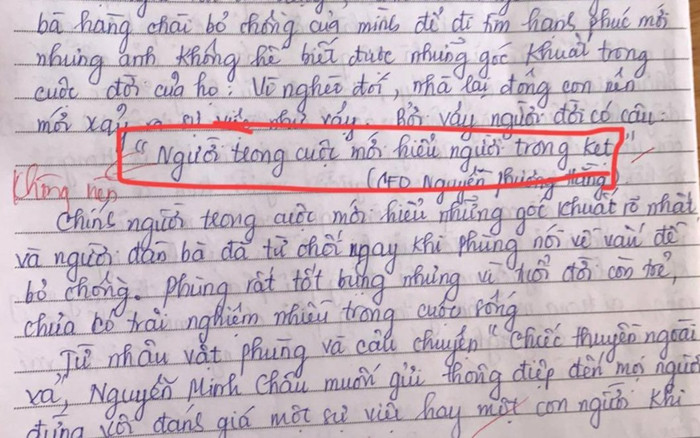 bà hàng chài bỏ chồng của mình để đi tìm hạnh phúc mới
nhưng anh không hề biết được những góc khuất trong
cuộc đời của họ: Vì nghèo đói, nhà lại đông con nên
mới xảy ra sự việc như vậy. Bởi vậy người đời có câu:
"Người trong cuộc mới hiểu người trong kẹt"
(CEO Nguyễn Phương Hằng)
Không nên
Chính người trong cuộc mới hiểu những góc khuất rõ nhất
và người đàn bà đã từ chối ngay khi Phùng nói về vấn đề
bỏ chồng. Phùng rất tốt bụng nhưng vì tuổi đời còn trẻ,
chưa có trải nghiệm nhiều trong cuộc sống
Từ nhân vật Phùng và câu chuyện "Chiếc thuyền ngoài
xa", Nguyễn Minh Châu muốn gửi thông điệp đến mọi người
đừng vội đánh giá một sự việc hay một con người khi